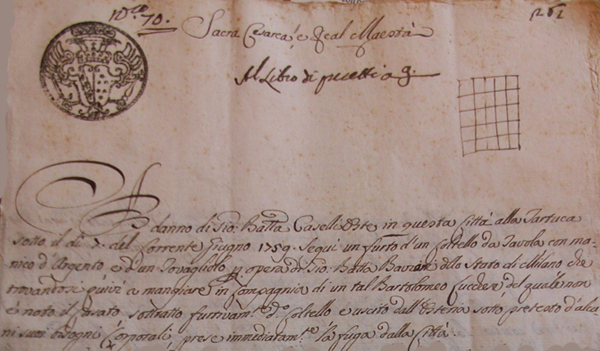 10.bre 70.
Sacra Cesarea e Real Maestà
Al Libro di precetti a 9.
A danno di Gio: Batta Caselli Oste in questa Città alla Tartuca
sotto il dì 7. del Corrente Giugno 1759. Seguì un furto d'un Coltello da Tavola con ma=
nico d'Argento, e d'un Tovagliolo p opera di Gio: Batta Bavani dello Stato di Milano che
trovantosi quivi a mangiare in Compagnia di un tal Bartolomeo del quale non
è noto il Casato sottratto furtivam.te d.o Coltello e uscito dall'Osteria sotto pretesto d'alcu
ni suoi bisogni Corporali prese immediatam.te la fuga dalla Città.